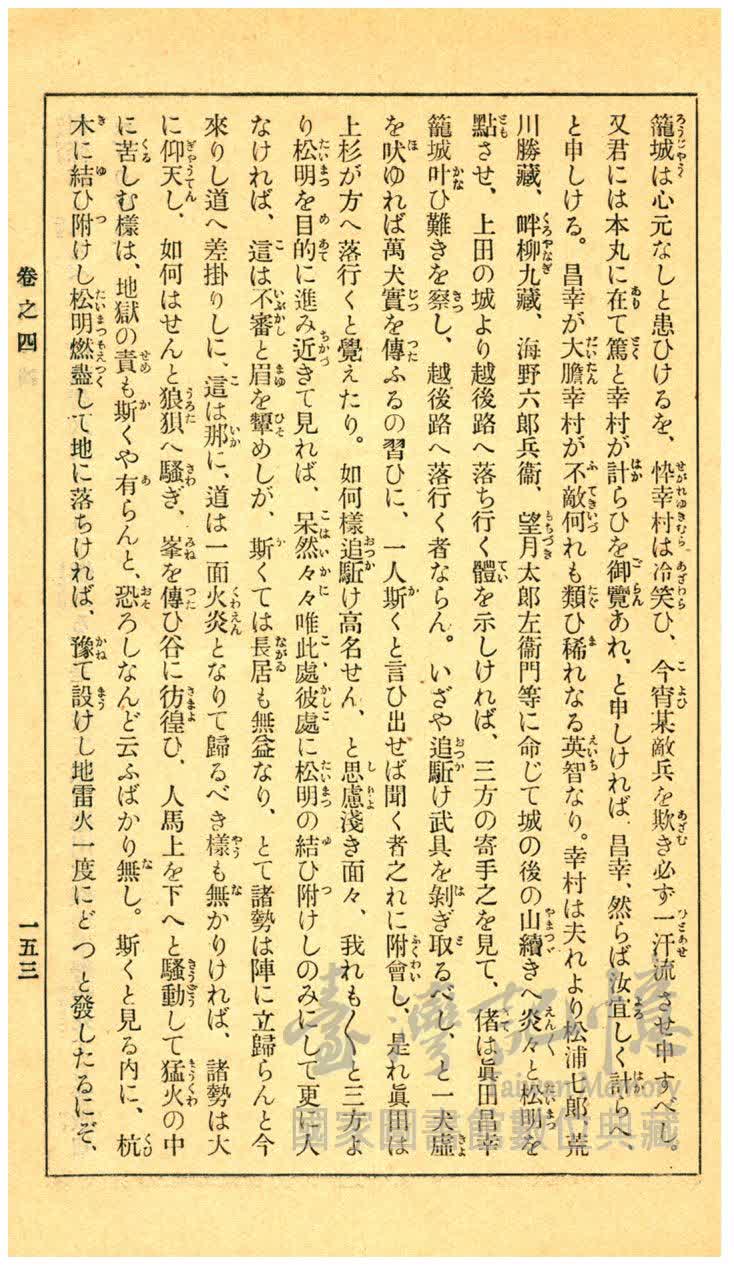 籠城は心元なしと患ひけるを、悴幸村は冷笑ひ、今宵某敵兵を欺き必ず一汗流させ申すべし。
又君には本丸に在て篤と幸村が計らひを御覽あれ、と申しければ、昌幸、然らば汝宜しく計らへ、
と申しける。昌幸が大膽幸村が不敵何れも類ひ稀れなる英智なり。幸村は夫れより松浦七郎、荒
川勝藏、畔柳九藏、海野六郎兵衞、望月太郎左衞門等に命じて城の後の山續きへ炎々と松明を
點させ、上田の城より越後路へ落ち行く體を示しければ、三方の寄手之を見て、偖は眞田昌幸
籠城叶ひ難きを察し、越後路へ落行く者ならん。いざや追駈け武具を剝ぎ取るべし、と一犬虛
を吠ゆれば萬犬實を傳ふるの習ひに、一人斯くと言ひ出せば聞く者之れに附會し、是れ眞田は
上杉が方へ落行くと覺えたり。如何樣追駈け高名せん、と思慮淺き面々、我れも〱と三方よ
り松明を目的に進み近きて見れば、呆然々々唯此處彼處に松明の結ひ附けしのみにして更に人
なければ、這は不審と眉を顰めしが、斯くては長居も無益なり、とて諸勢は陣に立歸らんと今
來りし道へ差掛りしに、這は那に、道は一面火炎となりて歸るべき樣も無かりければ、諸勢は大
に仰天し、如何はせんと狼狽へ騷ぎ、峯を傳ひ谷に彷徨ひ、人馬上を下へと騷動して猛火の中
に苦しむ樣は、地獄の責も斯くや有らんと、恐ろしなんど云ふばかり無し。斯くと見る內に、杭
木に結ひ附けし松明燃盡して地に落ちければ、豫て設けし地雷火一度にどつと發したるにぞ、
卷之四
一五三
臺灣記憶
Taiwan Memory
國家圖書館數位典藏